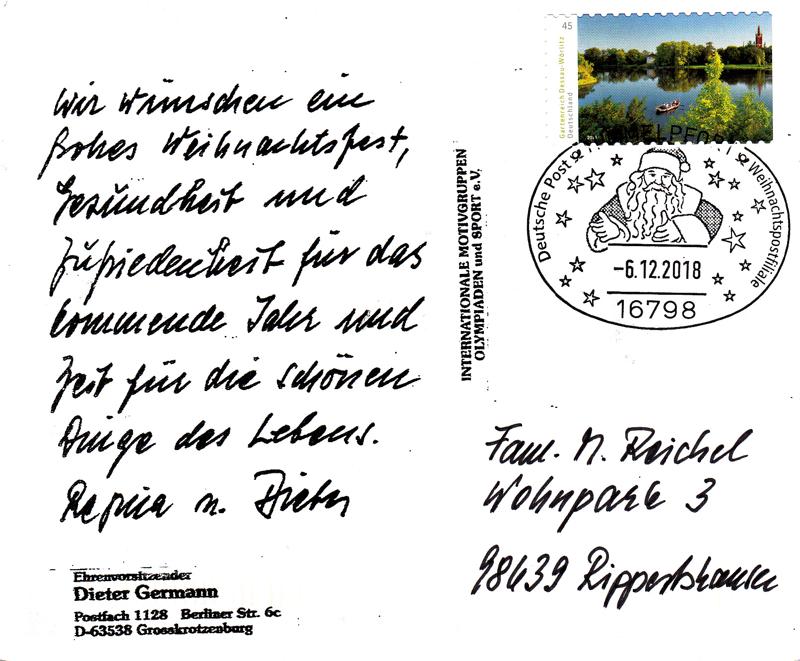 Wir wünschen ein
frohes Weihnachtsfest,
Gesundheit und
Zufriedenheit für das
kommende Jahr und
Zeit für die schönen
Dinge des Lebens.
Regina u. Dieter
Ehrenvorsitzender
Dieter Germann
Postfach 1128 Berliner Str. 6c
D-63538 Grosskrotzenburg
INTERNATIONALE MOTIVGRUPPEN
OLYMPIADEN und SPORT e.V.
45
Gartenreich Dessau-Wörlitz
Deutschland
HIMMELPFORT
Deutsche Post
Weihnachtspostfiliale
-6.12.2018
16798
Fam. M. Reichel
Wohnpark 3
98639 Rippershausen